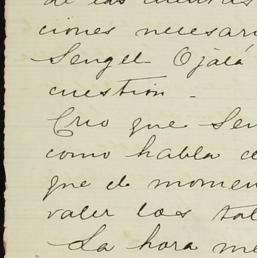 de las cuentas
ciones necesari
Senget Ojalá
cuestión.
Creo que Sen
como habla d
que de momen
valer los tal
La hora me